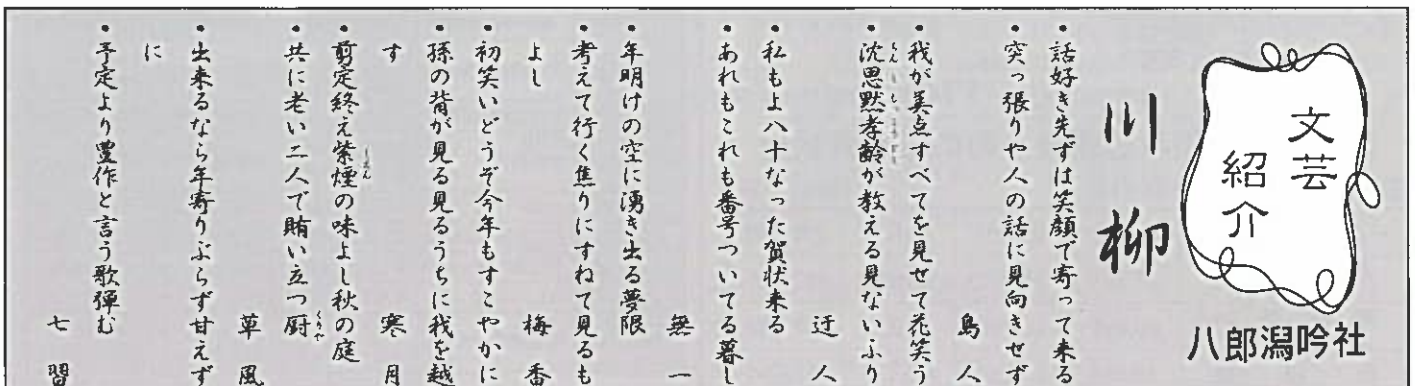 文芸
紹介
八郎潟吟社
川柳
・話好き先ずは笑顔で寄って来る
・突っ張りや人の話に見向きせず
島人
・我が美点すべてを見せて花笑う
・沈思黙孝齢が教える見ないふり
迂人
・私もよ八十なった賀状来る
・あれもこれも番号ついてる暮し
無一
・年明けの空に湧き出る夢限
・考えて行く焦りにすねて見るも
よし
梅香
・初笑いどうぞ今年もすこやかに
・孫の背が見る見るうちに我を越
す
寒月
・剪定終え紫煙の味よし秋の庭
しえん
・共に老い二人で賄い立つ厨
くりや
草風
・出来るなら年寄りぶらず甘えず
に
・予定より豊作と言う歌弾む
七習